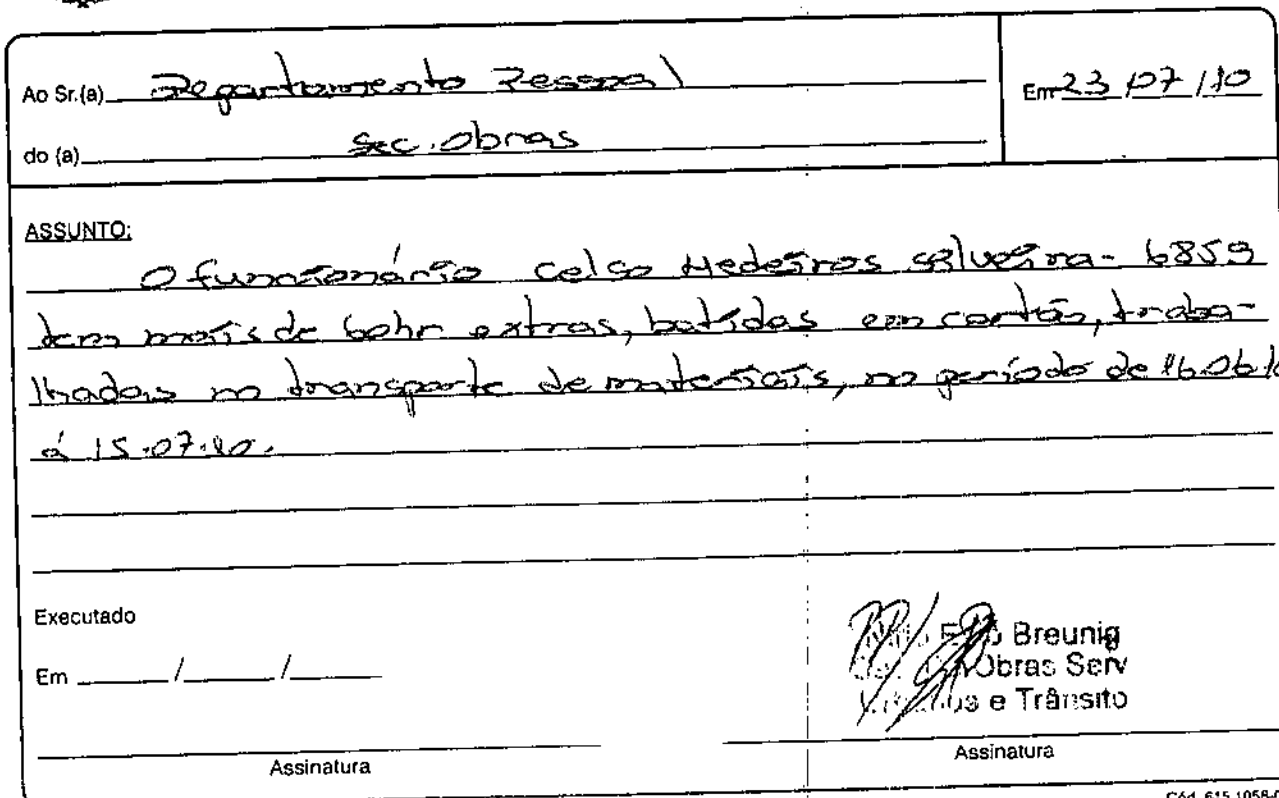 Ao Sr.(a) Departamento Pessoal
Em 23/07/10
do (a) Sec. Obras
ASSUNTO:
O funcionário Celso Medeiros Silveira - 6859
tem mais de 60hr extras, batidas em cartão, traba-
lhadas no transporte de materiais, no período de 16.06.10
á 15.07.10.
Executado
Em / /
Breunig
Obras Serv
e Trânsito
Assinatura
Assinatura
Cód. 615.1058-